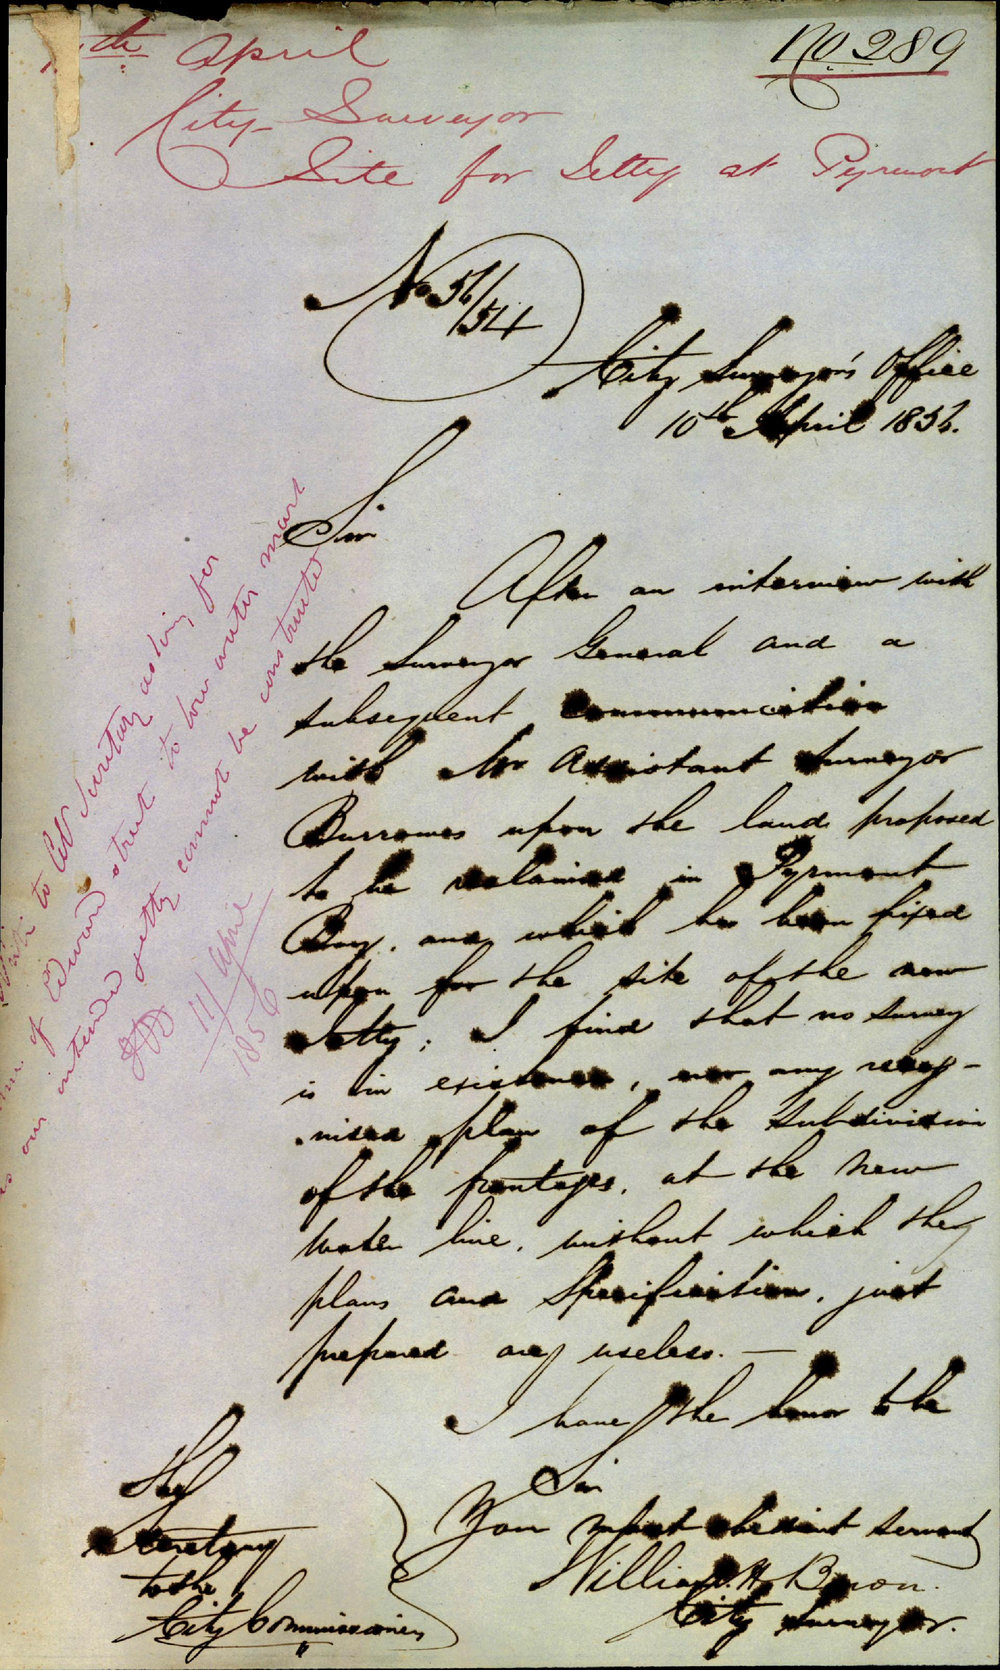 th April
No 289
City Surveyor
Site for Jetty at Pyrmont
No 56/54
City Surveyor's Office
10th April 1856.
Sir
After an interview with
the Surveyor General and a
subsequent communication
with Mr Assistant Surveyor
Burrowes upon the land proposed
to be reclaimed in Pyrmont
Bay, and which has been fixed
upon for the site of the new
Jetty; I find that no survey
is in existence, nor any recog-
nised plan of the subdivision
of the frontages, at the new
water line, without which the
plans and Specification, just
prepared are useless. —
I have the honor to be
Sir
Your most obedient servant
William H Bron.
City Surveyor.
The
Secretary
to the
City Commissioners
to Col Secretary asking for
of Edward street to low water mark
as our intended jetty cannot be constructed
11/ April
1856